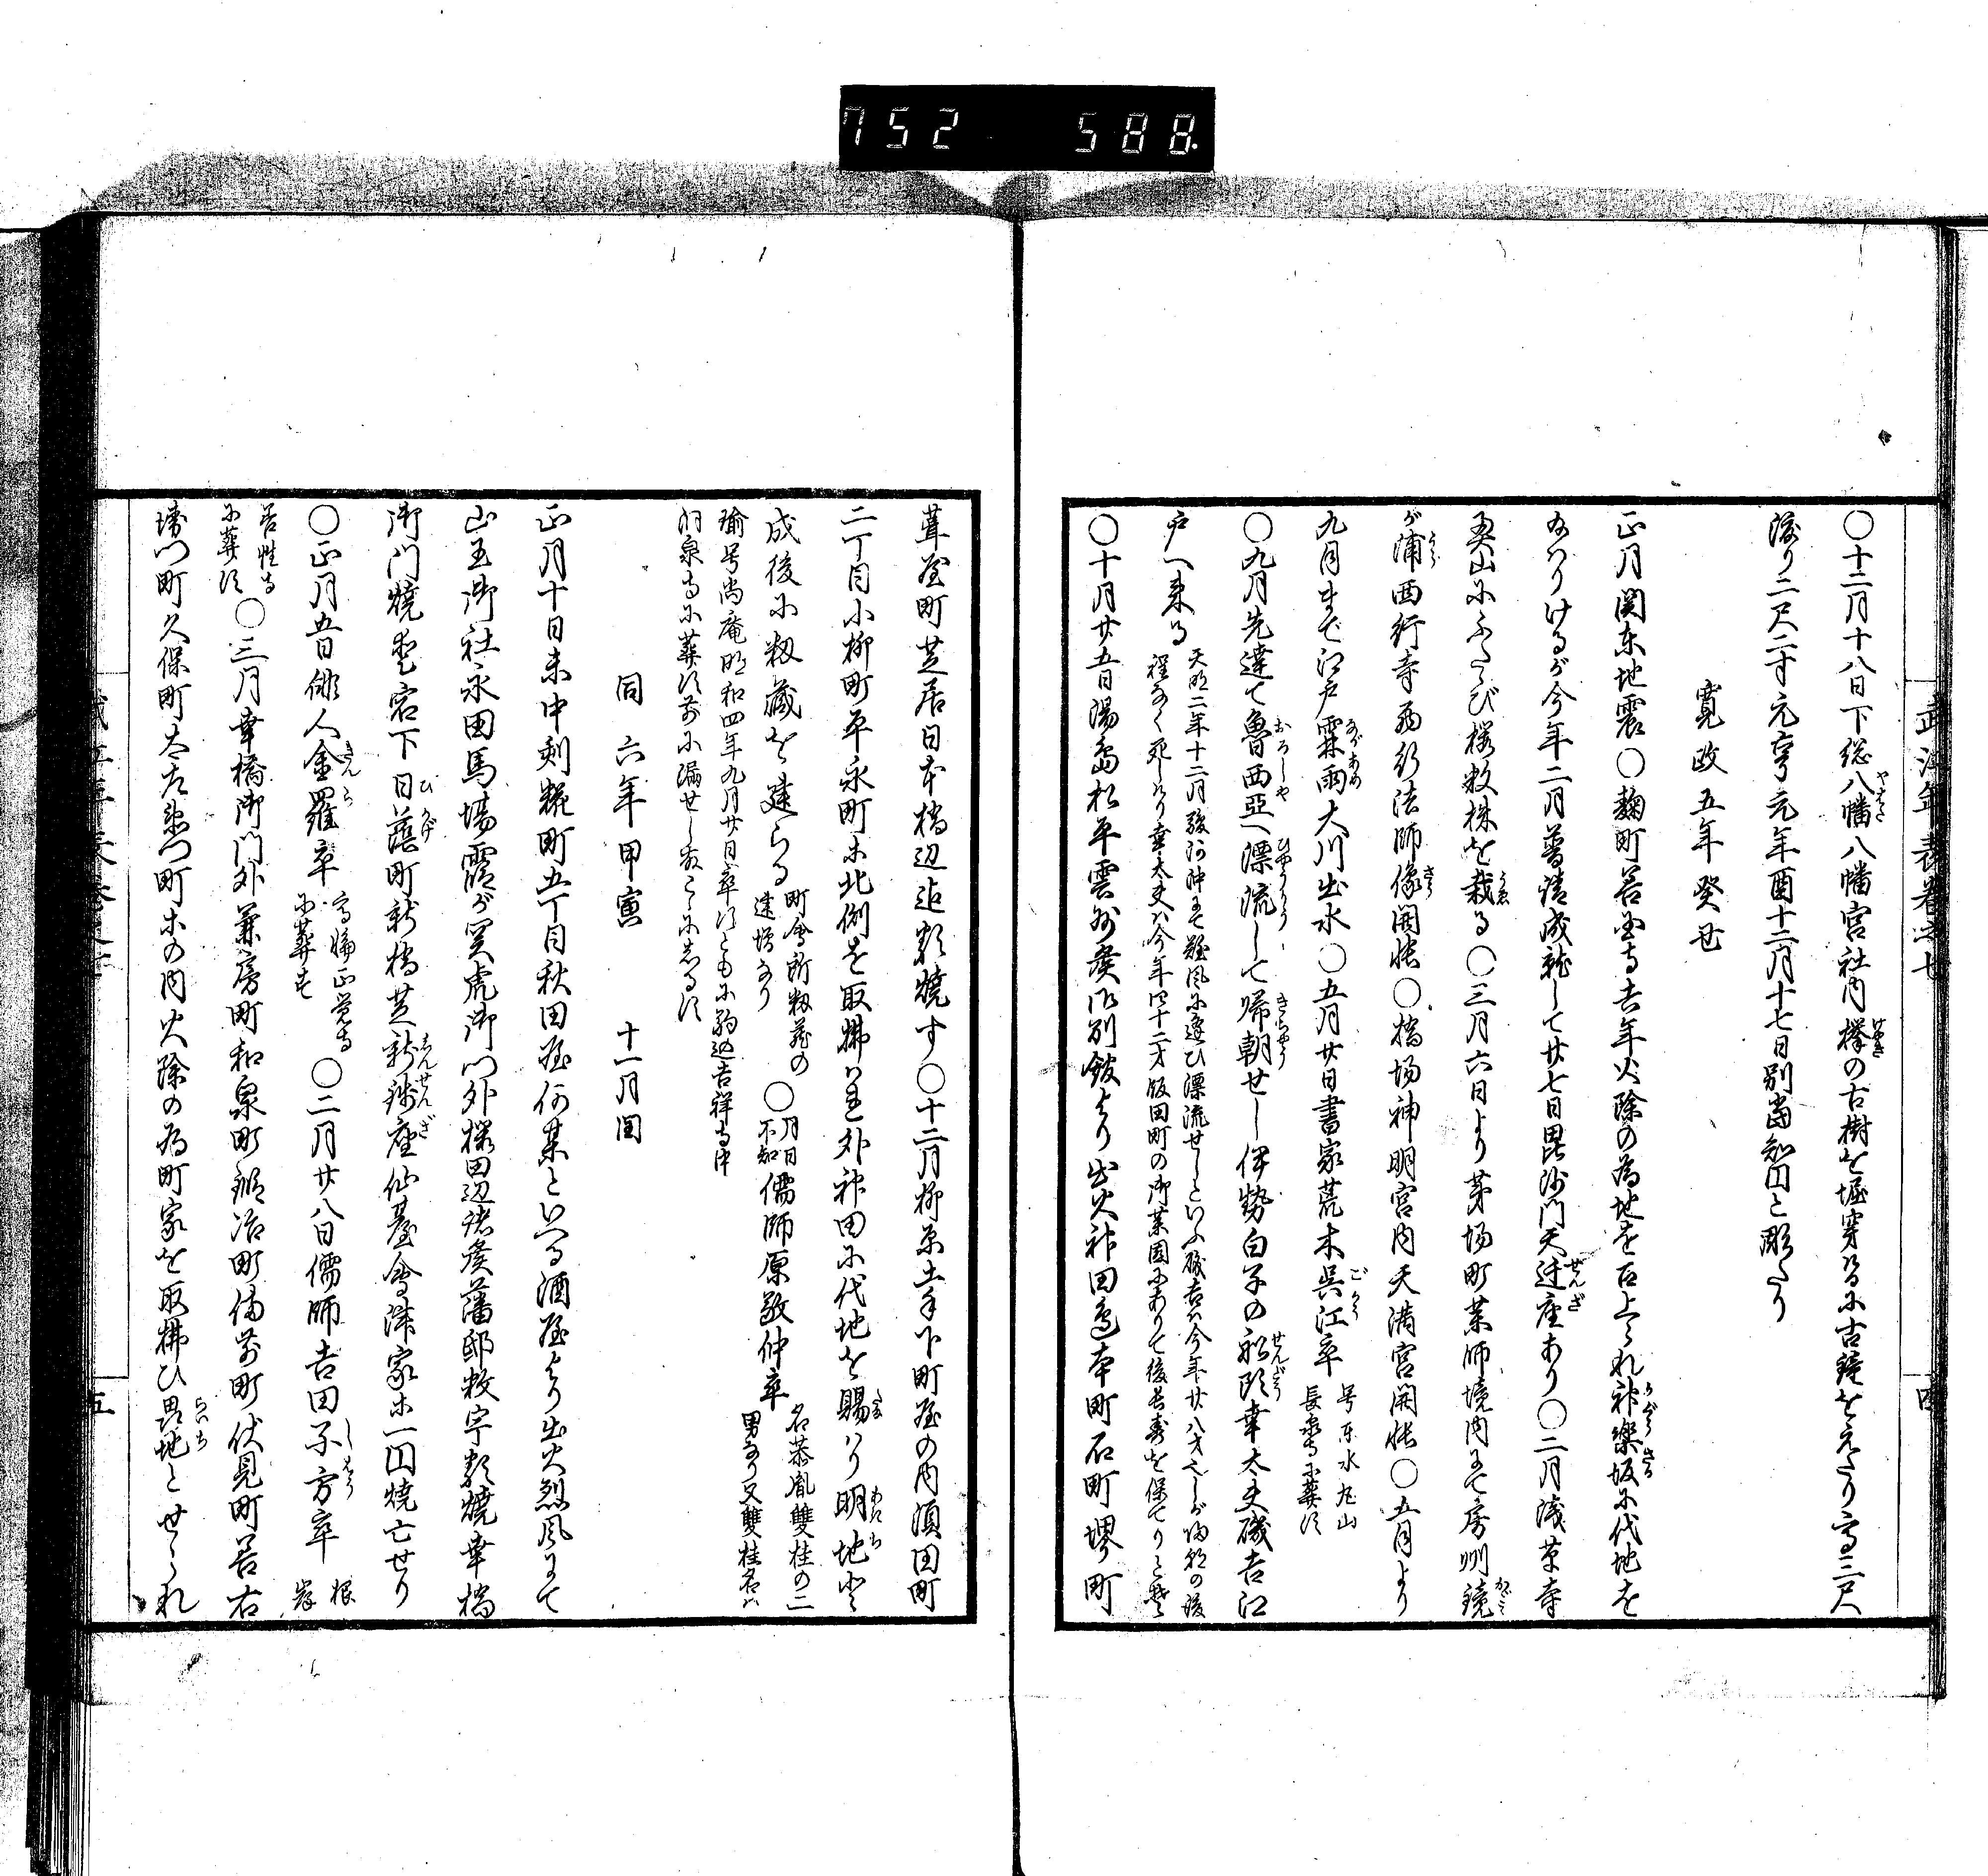 752 588
〇十二月十八日下総八幡八幡宮社内欅の古樹を堀穿けるに古鐘をえたり高三尺
渡り二尺二寸元亨元年酉十二月十七日別当知円と彫たり
寛政五年癸丑
正月関東地震〇麹町善国寺去年火除の為地を召上られ神楽坂に代地を
給はりけるが今年二月普請成就して廿七日毘沙門天迁座あり〇二月浅草寺
奥山にふたゝび桜数株を栽る〇三月六日より茅場町薬師境内にて房州鏡
が浦西行寺西行法師像開帳〇橋場神明宮内天満宮開帳〇五月より
九月まで江戸霖雨大川出水〇五月廿日書家荒木呉江卒
号在水左山
長泰寺に葬す
〇九月先達て魯西亞へ漂流して帰朝せし伊勢白子の船頭幸太夫磯吉江
戸へ来る
天明二年十二月駿河沖にて難風に逢ひ漂流せしといふ磯吉は今年廿八才也しが帰朝の後
程なく死しけり幸太夫は今年四十二才飯田町の御薬園にありて後長寿を保てりとぞ
〇十月廿五日湯島松平雲州侯御別館より出火神田辺本町石町堺町
葺屋町芝居日本橋辺迄類焼す〇十二月柳原土手下町屋の内須田町
二丁目小柳町平永町等北側を取払はれ外神田に代地を賜はり明地と
成後に籾蔵を建らる
町会所籾蔵の
建増なり
〇
月日
不知
儒師原敬仲卒
名恭胤雙桂の二
男なり又雙桂名は
瑜号尚庵明和四年九月廿日卒すともに駒込吉祥寺中
洞泉寺に葬す前に漏せし故こゝにしるす
同六年甲寅 十一月閏
正月十日未中刻糀町五丁目秋田屋何某といへる酒屋より出火烈風にて
山王御社永田馬場霞が関虎御門外桜田辺諸侯藩邸数宇類焼幸橋
御門焼愛宕下日蔭町新橋芝新銭座仙台会津家等一円焼亡せり
〇正月五日俳人金羅卒
高輪正覚寺
に葬す
〇二月廿八日儒師吉田子方卒
根
岸
善性寺
に葬す
〇三月幸橋御門外兼房町和泉町鍛冶町備前町伏見町善右
衛門町久保町太左衛門町等の内火除の為町家を取払ひ畾地とせられ
武江年表巻之七
四
五